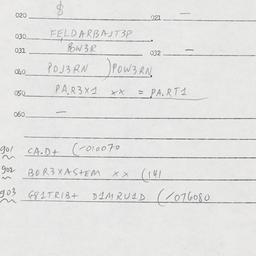 020 $ 021 —
030 FELDARBAJT3P
031 BW3R 032 —
040 POJ3RN )POW3RN
050 PA,R3X1 xx = PA.RT1
060 —
901 CA.D+ (/010070
902 BOR3XASTEM xx (141
903 G81TRIB+ D1MRU1D (/076080